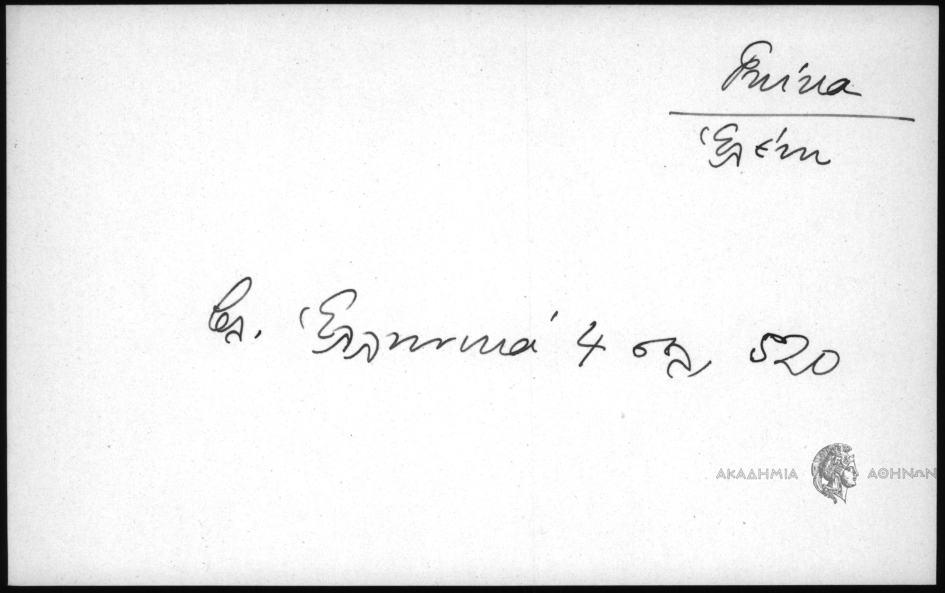 Ἑλένη
βλ. Ἑλληνικά 4 σελ. 520
ΑΚΑΔΗΜΙΑ ΑΘΗΝΩΝ